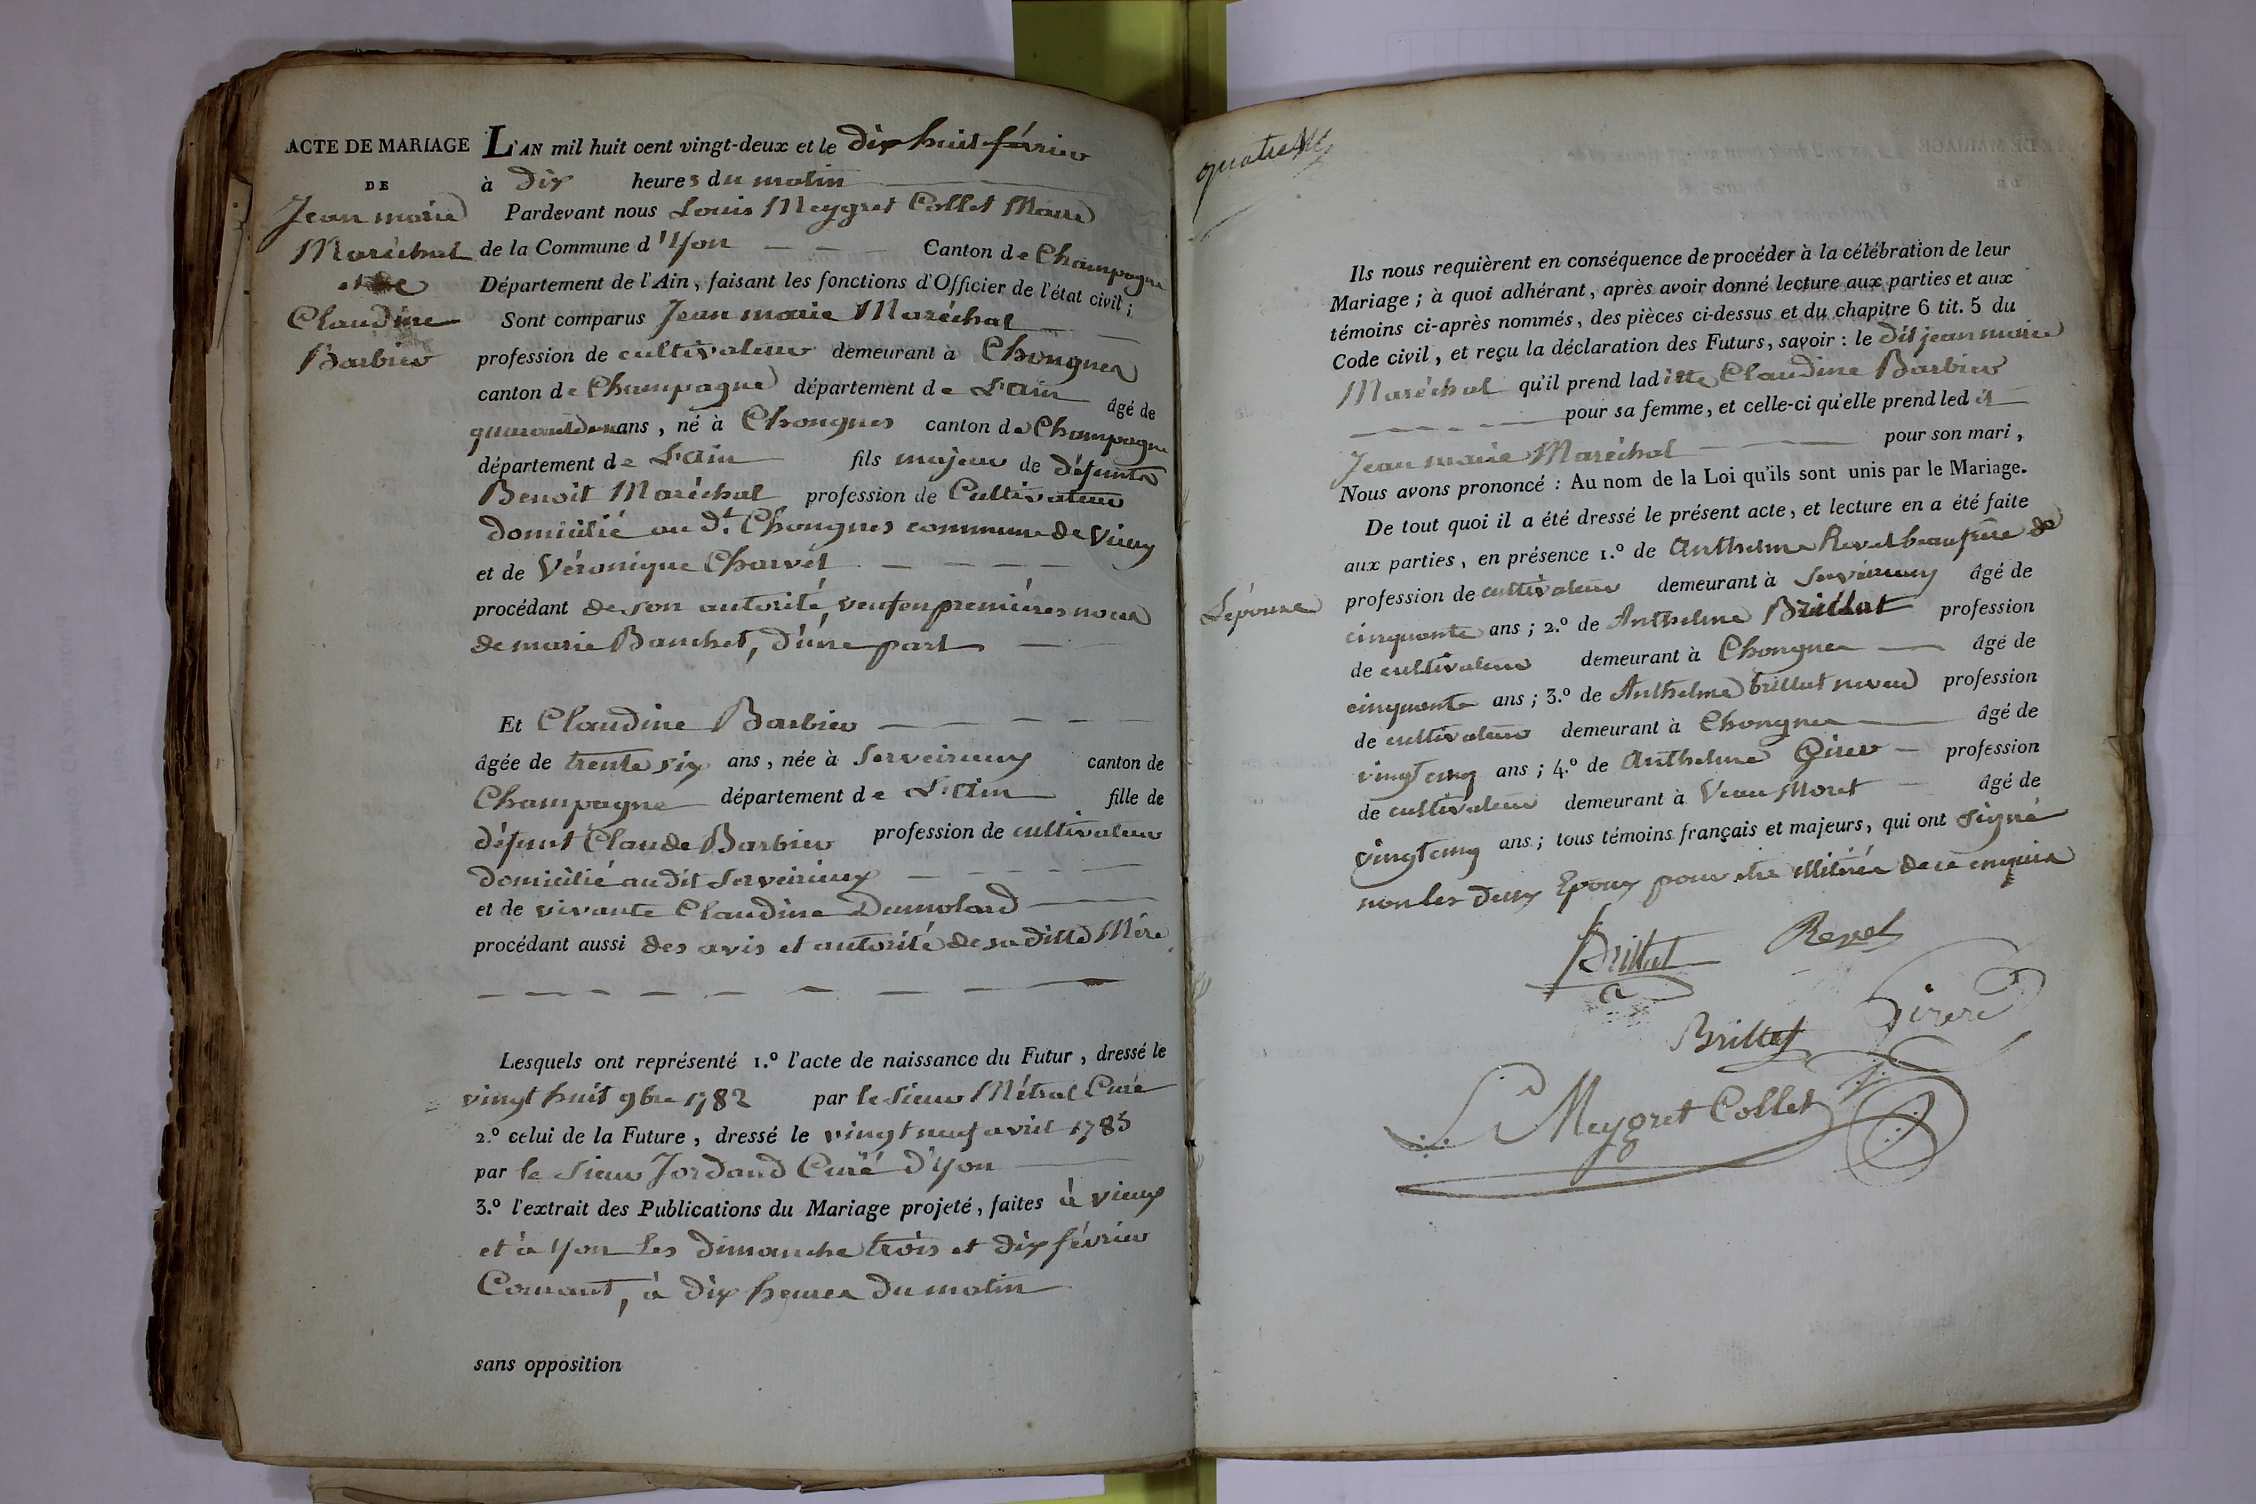 ACTE DE MARIAGE
DE
Jean marie
Maréchal
et de
Claudine
Barbier
L'AN mil huit cent vingt-deux et le dix huit février
à dix heures du matin
Pardevant nous Louis Meygret Collet Maire
de la Commune d'Yon Canton de Champagne
Département de l'Ain, faisant les fonctions d'Officier de l'état civil;
Sont comparus Jean marie Maréchal
profession de cultivateur demeurant à Chongnes
canton de Champagne département de L'Ain âgé de
quarante ans, né à Chongnes canton de Champagne
département de L'Ain fils majeur de défunts
Benoit Maréchal profession de Cultivateur
domicilié au dt. Chongnes commune de Vieux
et de Véronique Charvét
procédant de son autorité, veuf en premières noces
de marie Banchet, d'une part
Et Claudine Barbier
âgée de trente six ans, née à Serveirieux canton de
Champagne département de L'Ain fille de
défunt Claude Barbier profession de cultivateur
domicilié audit Serveirieux
et de vivante Claudine Dumolard
procédant aussi des avis et autorité de sa ditte Mére
Lesquels ont représenté 1.º l'acte de naissance du Futur, dressé le
vingt huit 9bre 1782 par le sieur Métral Curé
2.º celui de la Future, dressé le vingt neuf avril 1785
par le Sieur Jordand Curé d'yon
3.º l'extrait des Publications du Mariage projeté, faites à vieux
et à yon les dimanche trois et dix février
Courant, à dix heures du matin
sans opposition
quatre
Ils nous requièrent en conséquence de procéder à la célébration de leur
Mariage; à quoi adhérant, après avoir donné lecture aux parties et aux
témoins ci-après nommés, des pièces ci-dessus et du chapitre 6 tit. 5 du
Code civil, et reçu la déclaration des Futurs, savoir : le dit jean marie
Maréchal qu'il prend laditte Claudine Barbier
pour sa femme, et celle-ci qu'elle prend ledit
Jean marie Maréchal pour son mari,
Nous avons prononcé : Au nom de la Loi qu'ils sont unis par le Mariage.
De tout quoi il a été dressé le présent acte, et lecture en a été faite
aux parties, en présence 1.º de Anthelme Revel beaufrère de
L'épouse
profession de cultivateur demeurant à Serveirieux âgé de
cinquante ans; 2.º de Anthelme Brillat profession
de cultivateur demeurant à Chongnes âgé de
cinquante ans; 3.º de Anthelme brillat neveu profession
de cultivateur demeurant à Chongnes âgé de
vingt cinq ans; 4.º de Anthelme Girer profession
de cultivateur demeurant à Moret âgé de
vingt cinq ans; tous témoins français et majeurs, qui ont signé
non les deux Epoux pour être illitérés de ce enquis
Brillat Revel
Brillat Girerd
L. Meygret Collet